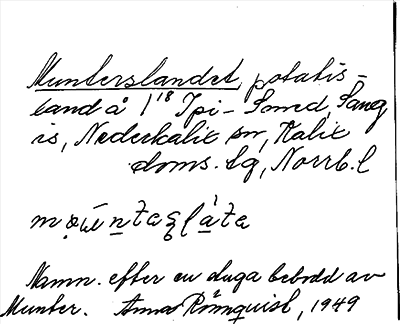 Munterslandet, potatis-
land å 1¹⁸ Ipi-Smed, Sang
is, Nederkalix sn, Kalix
doms. sg, Norrb. l
Namn. efter en stuga bebodd av
Munter. Anna Rönnquist, 1949